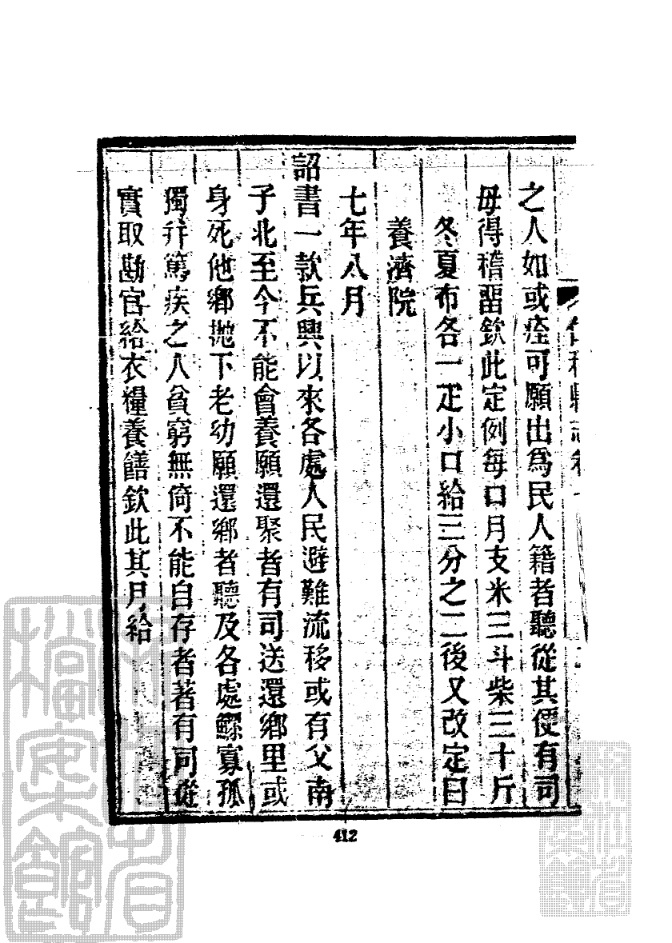 之人如或痊可願出爲民人籍者聽從其便有司
毋得稽畱欽此定例每口月支米三斗柴三十斤
冬夏布各一疋小口給三分之二後又改定曰
養濟院
七年八月
詔書一款兵興以來各處人民避難流移或有父南
子北至今不能會養願還聚者有司送還鄉里或
身死他鄉拋下老幼願還鄉者聽及各處鰥寡孤
獨幷篤疾之人貧窮無倚不能自存者著有司從
實取勘官給衣糧養饍欽此其月給
412